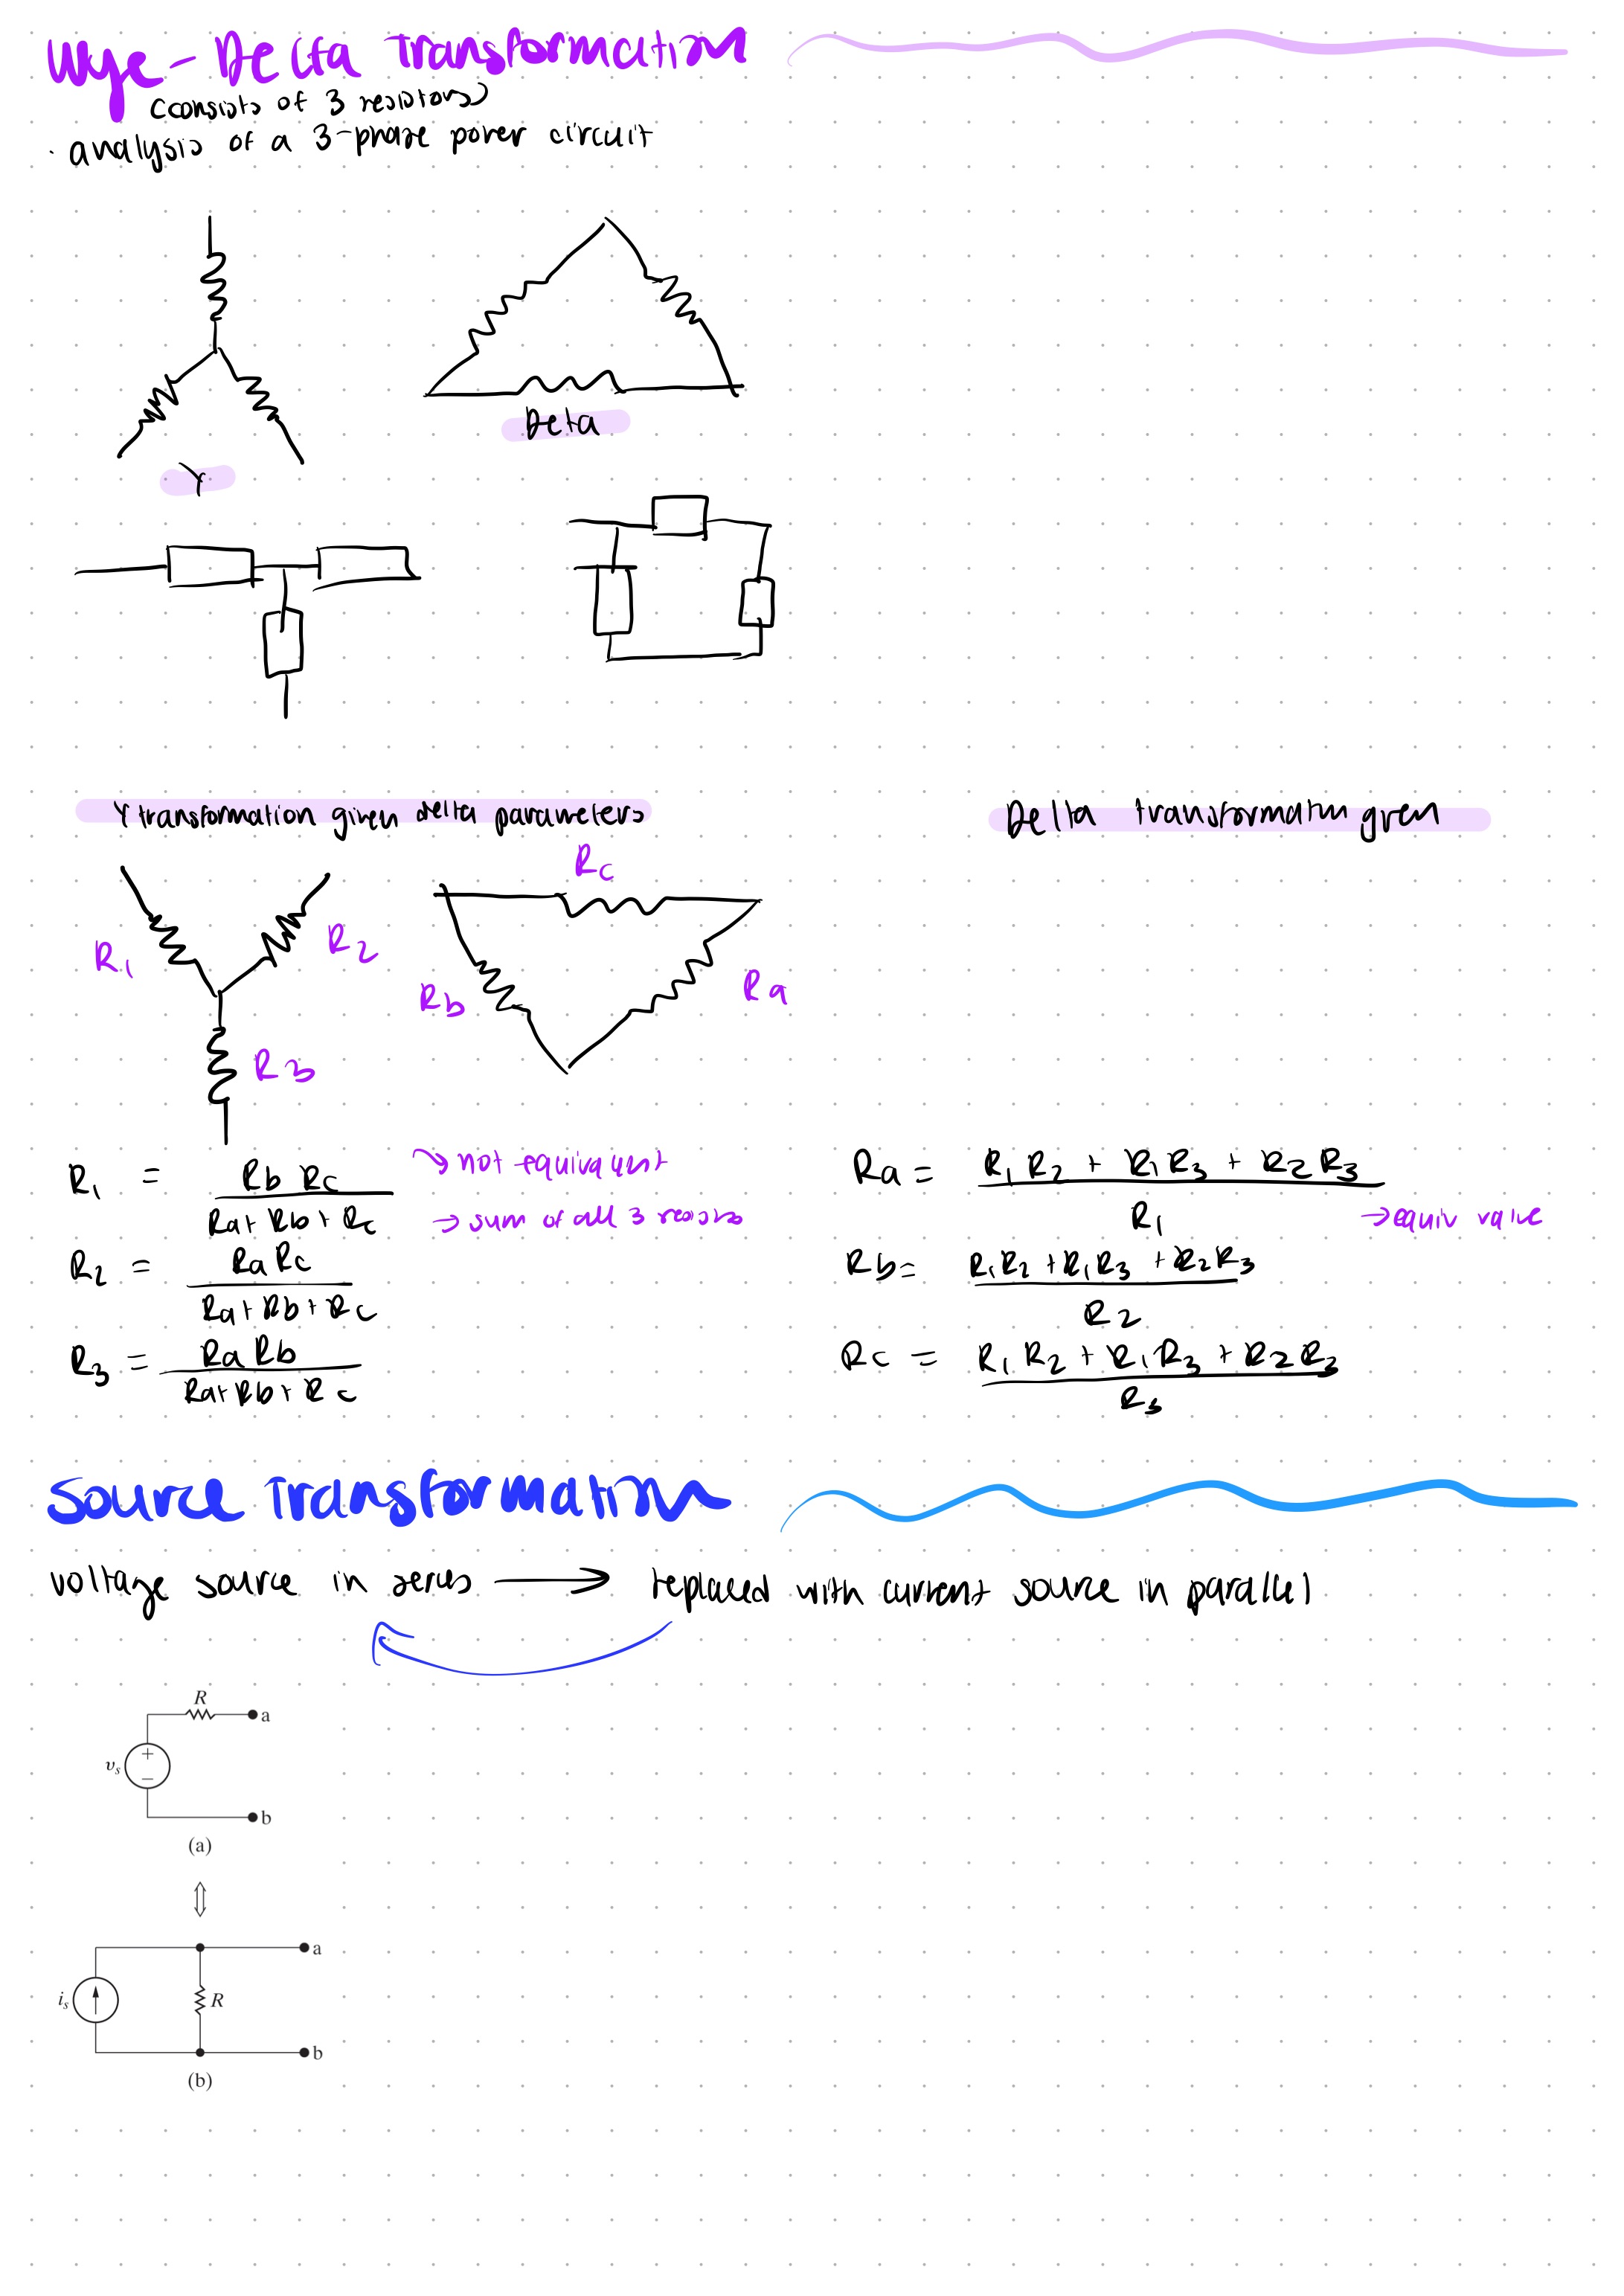 Wye - Delta Transformation
(consists of 3 resistors)
· analysis of a 3-phase power circuit
Y
Delta
Y transformation given delta parameters
Delta transformation given
R1
R2
R3
Rc
Rb
Ra
R1 = Rb Rc / Ra + Rb + Rc
→ not equivalent
→ sum of all 3 resistors
R2 = Ra Rc / Ra + Rb + Rc
R3 = Ra Rb / Ra + Rb + Rc
Ra = R1 R2 + R1 R3 + R2 R3 / R1
→ equiv value
Rb = R1 R2 + R1 R3 + R2 R3 / R2
Rc = R1 R2 + R1 R3 + R2 R3 / R3
Source Transformation
voltage source in series → replaced with current source in parallel
R
a
vs
+
−
b
(a)
a
is
R
b
(b)